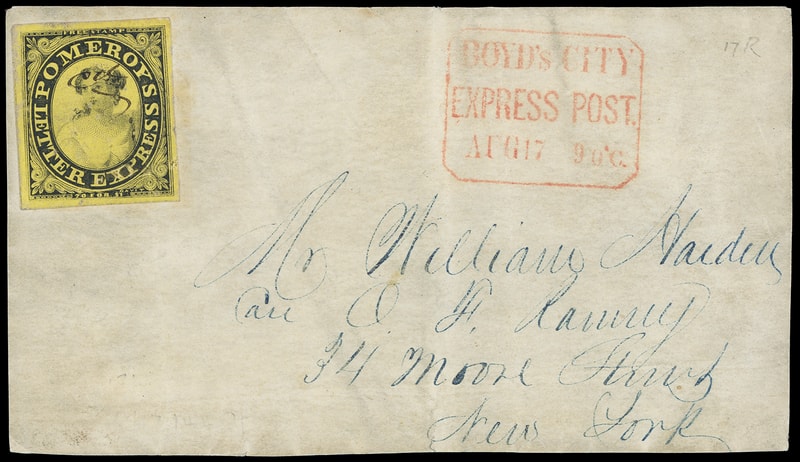 FREE STAMP
POMEROY'S
LETTER EXPRESS.
20 FOR $1
BOYD'S CITY
EXPRESS POST.
AUG 17 9 O'C.
17R
Mr William Harden
Care O. F. Ramsey
34 Moore Street
New York